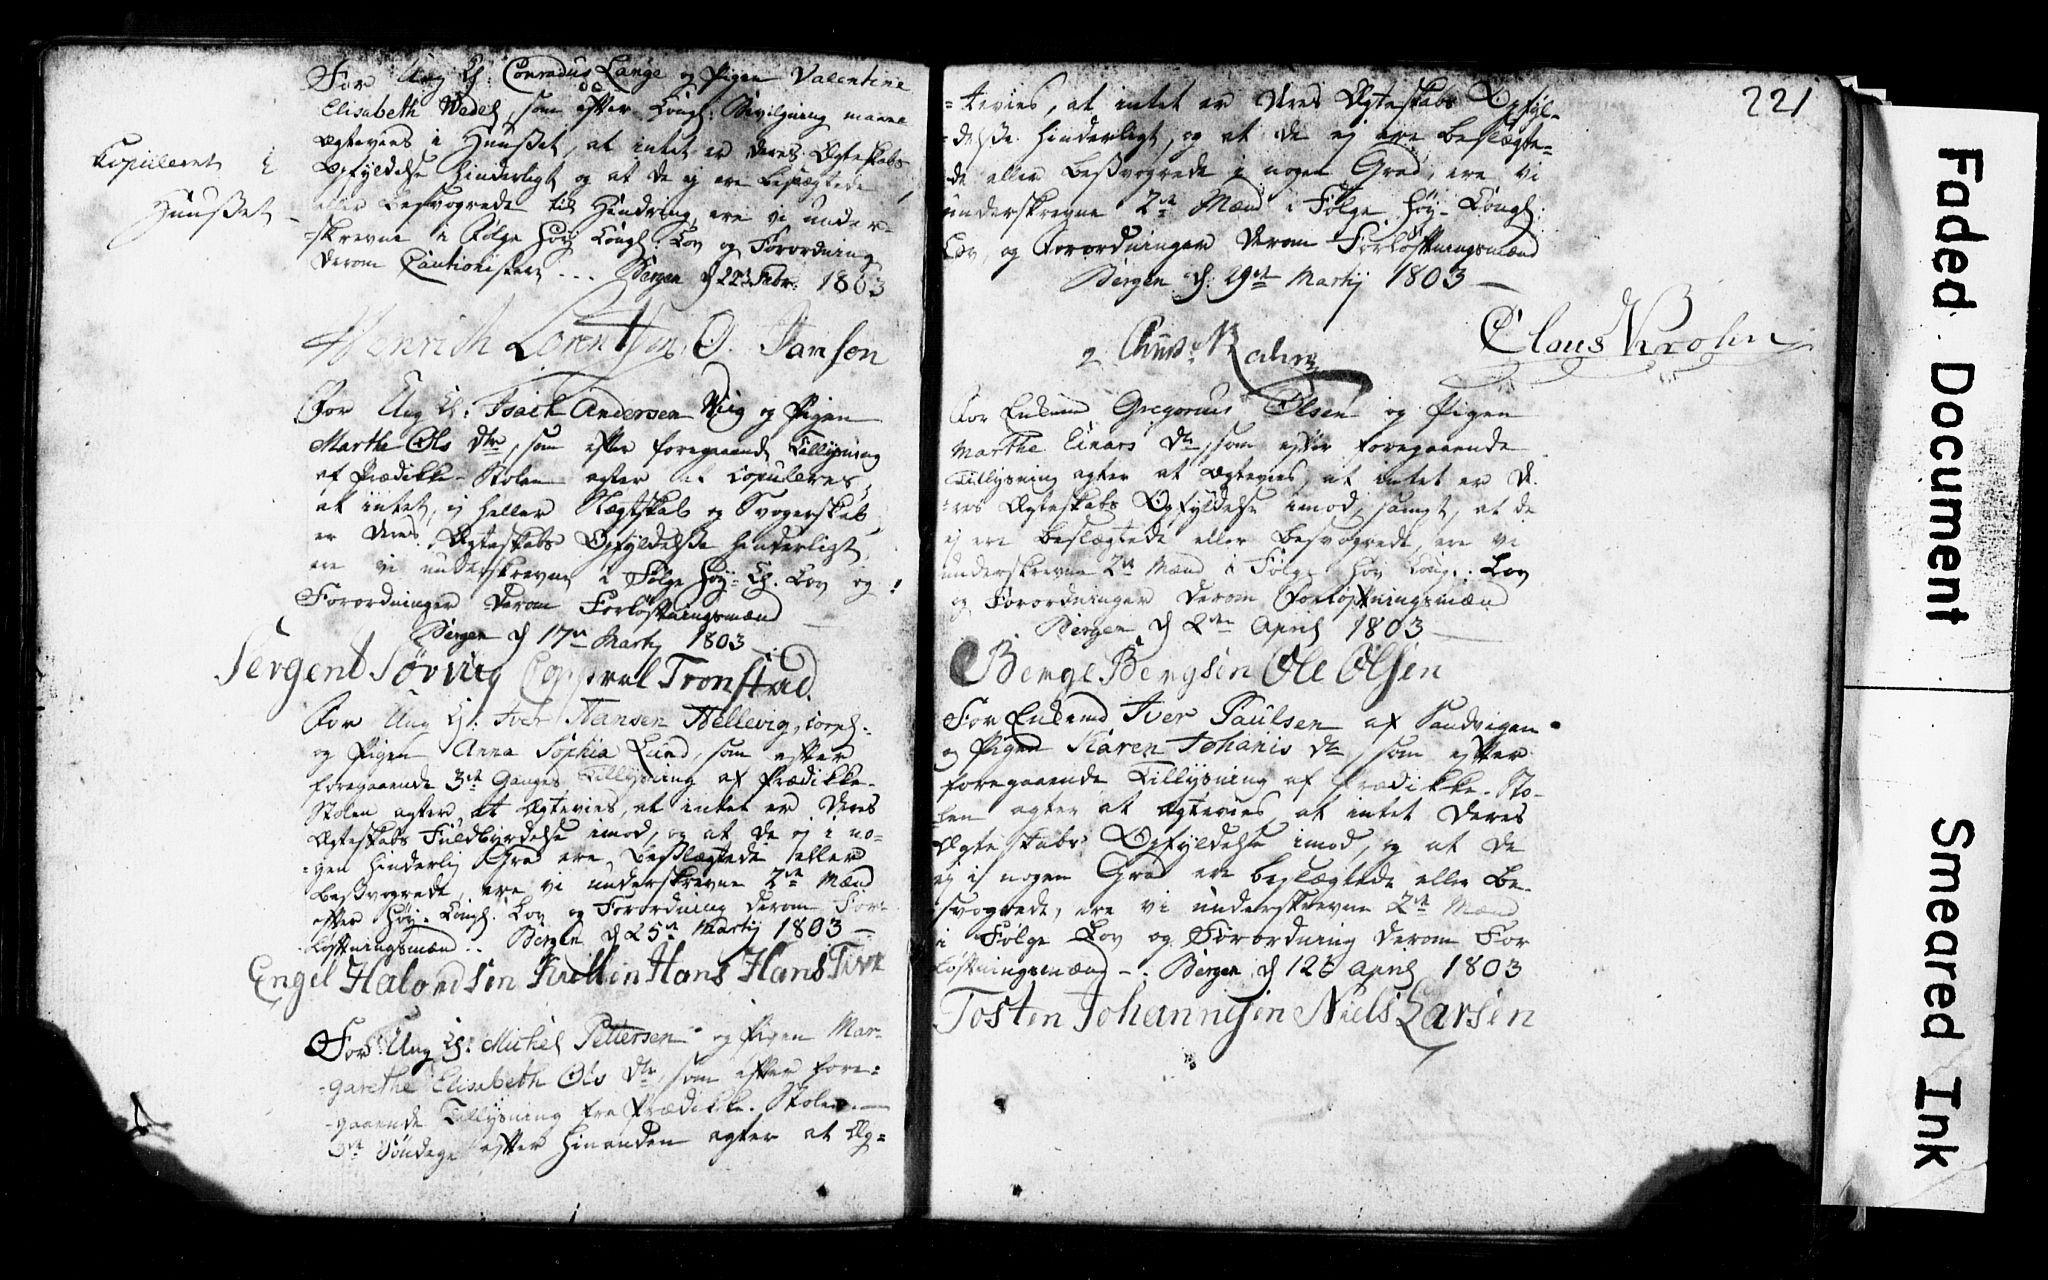 For Ung K: Conradus Lange og Pigen Valentine
Elisabeth Wedel, som efter Kongl: Bevilgning maae
Ægtevies i Huuset, at intet er deres Ægteskabs
Opfyldelse hinderligt og at de ej ere beslægtede
eller besvogrede til Hindring, ere vi under-
-skrevne i Følge høy Kongl. Lov og Forordning
derom Cautionister --- Bergen d 22 Febr: 1803
Copuleret i
Huuset
Henrich Lorentsen O. Jansen
For Ung K: Isach Andersen Viig og Pigen
Marthe Ols dtr, som efter foregaaende Tillysning
af Prædikke-Stolen agter at Copuleres,
at intet, ej heller Slægtskab og Svogerskab
er deres Ægteskabs Opfyldelse hinderligt,
ere vi underskrevne i Følge høy- K. Lov og
Forordninger derom Forløftningsmænd
Bergen d 17de Martj 1803
Sergent Sørvig Corporal Tronstad
For Ung K. Iver Hansen Hellevig, Corpl.
og Pigen Anna Sophia Lund, som efter
foregaaende 3de Ganges Tillysning af Prædikke-
Stolen agter at Ægtevies, at intet er deres
Ægteskabs Fuldbyrdelse imod, og at de ej i no-
-gen hinderlig Grad ere beslægtede eller
besvogrede, ere vi underskrevne 2de Mænd
efter høy- Kongl. Lov og Forordning derom For-
løftningsmænd -. Bergen d 25de Martij 1803 -
Engel Halvorsen Hans Hans
For Ung K: Michel Pettersen og Pigen Mar-
-garethe Elisabeth Ols dtr, som efter fore-
-gaaende Tillysning fra Prædikke-Stolen
3de Søndage efter hinanden agter at Æg-
221
-tevies, at intet er deres Ægteskabs Opfyl-
-delse hinderligt, og at de ej ere beslægte-
-de eller besvogrede i nogen Grad, ere vi
underskrevne 2de Mænd i Følge høy- Kongl:
Lov, og Forordninger derom Forløftningsmænd
Bergen d: 29de Martij 1803 -
Claus Krohn
For Enkemd Gregorius Olsen og Pigen
Marthe Einars Dtr, som efter foregaaende
Tillysning agter at Ægtevies, at intet er de-
-res Ægteskabs Opfyldelse imod, samt, at de
ej ere beslægtede eller besvogrede, ere vi
underskrevne 2de Mænd i Følge høy Kong.. Lov
og Forordninger derom Forløftningsmænd
Bergen d 2den April 1803 -
Berge Bergsen Ole Olsen
For Enkemd Iver Paulsen af Sandvigen
og Pigen Karen Johanis dtr, som efter
foregaaende Tillysning af Prædikke-Sto-
-len agter at Ægtevies at intet deres
Ægteskabs Opfyldelse imod, og at de
ej i nogen Grad ere beslægtede eller be-
svogrede, ere vi underskrevne 2de Mænd
i Følge Lov og Forordning derom For
løftningsmænd -. Bergen d 12 April 1803
Tosten Johannesen Niels Larsen
Faded Document
Smeared Ink